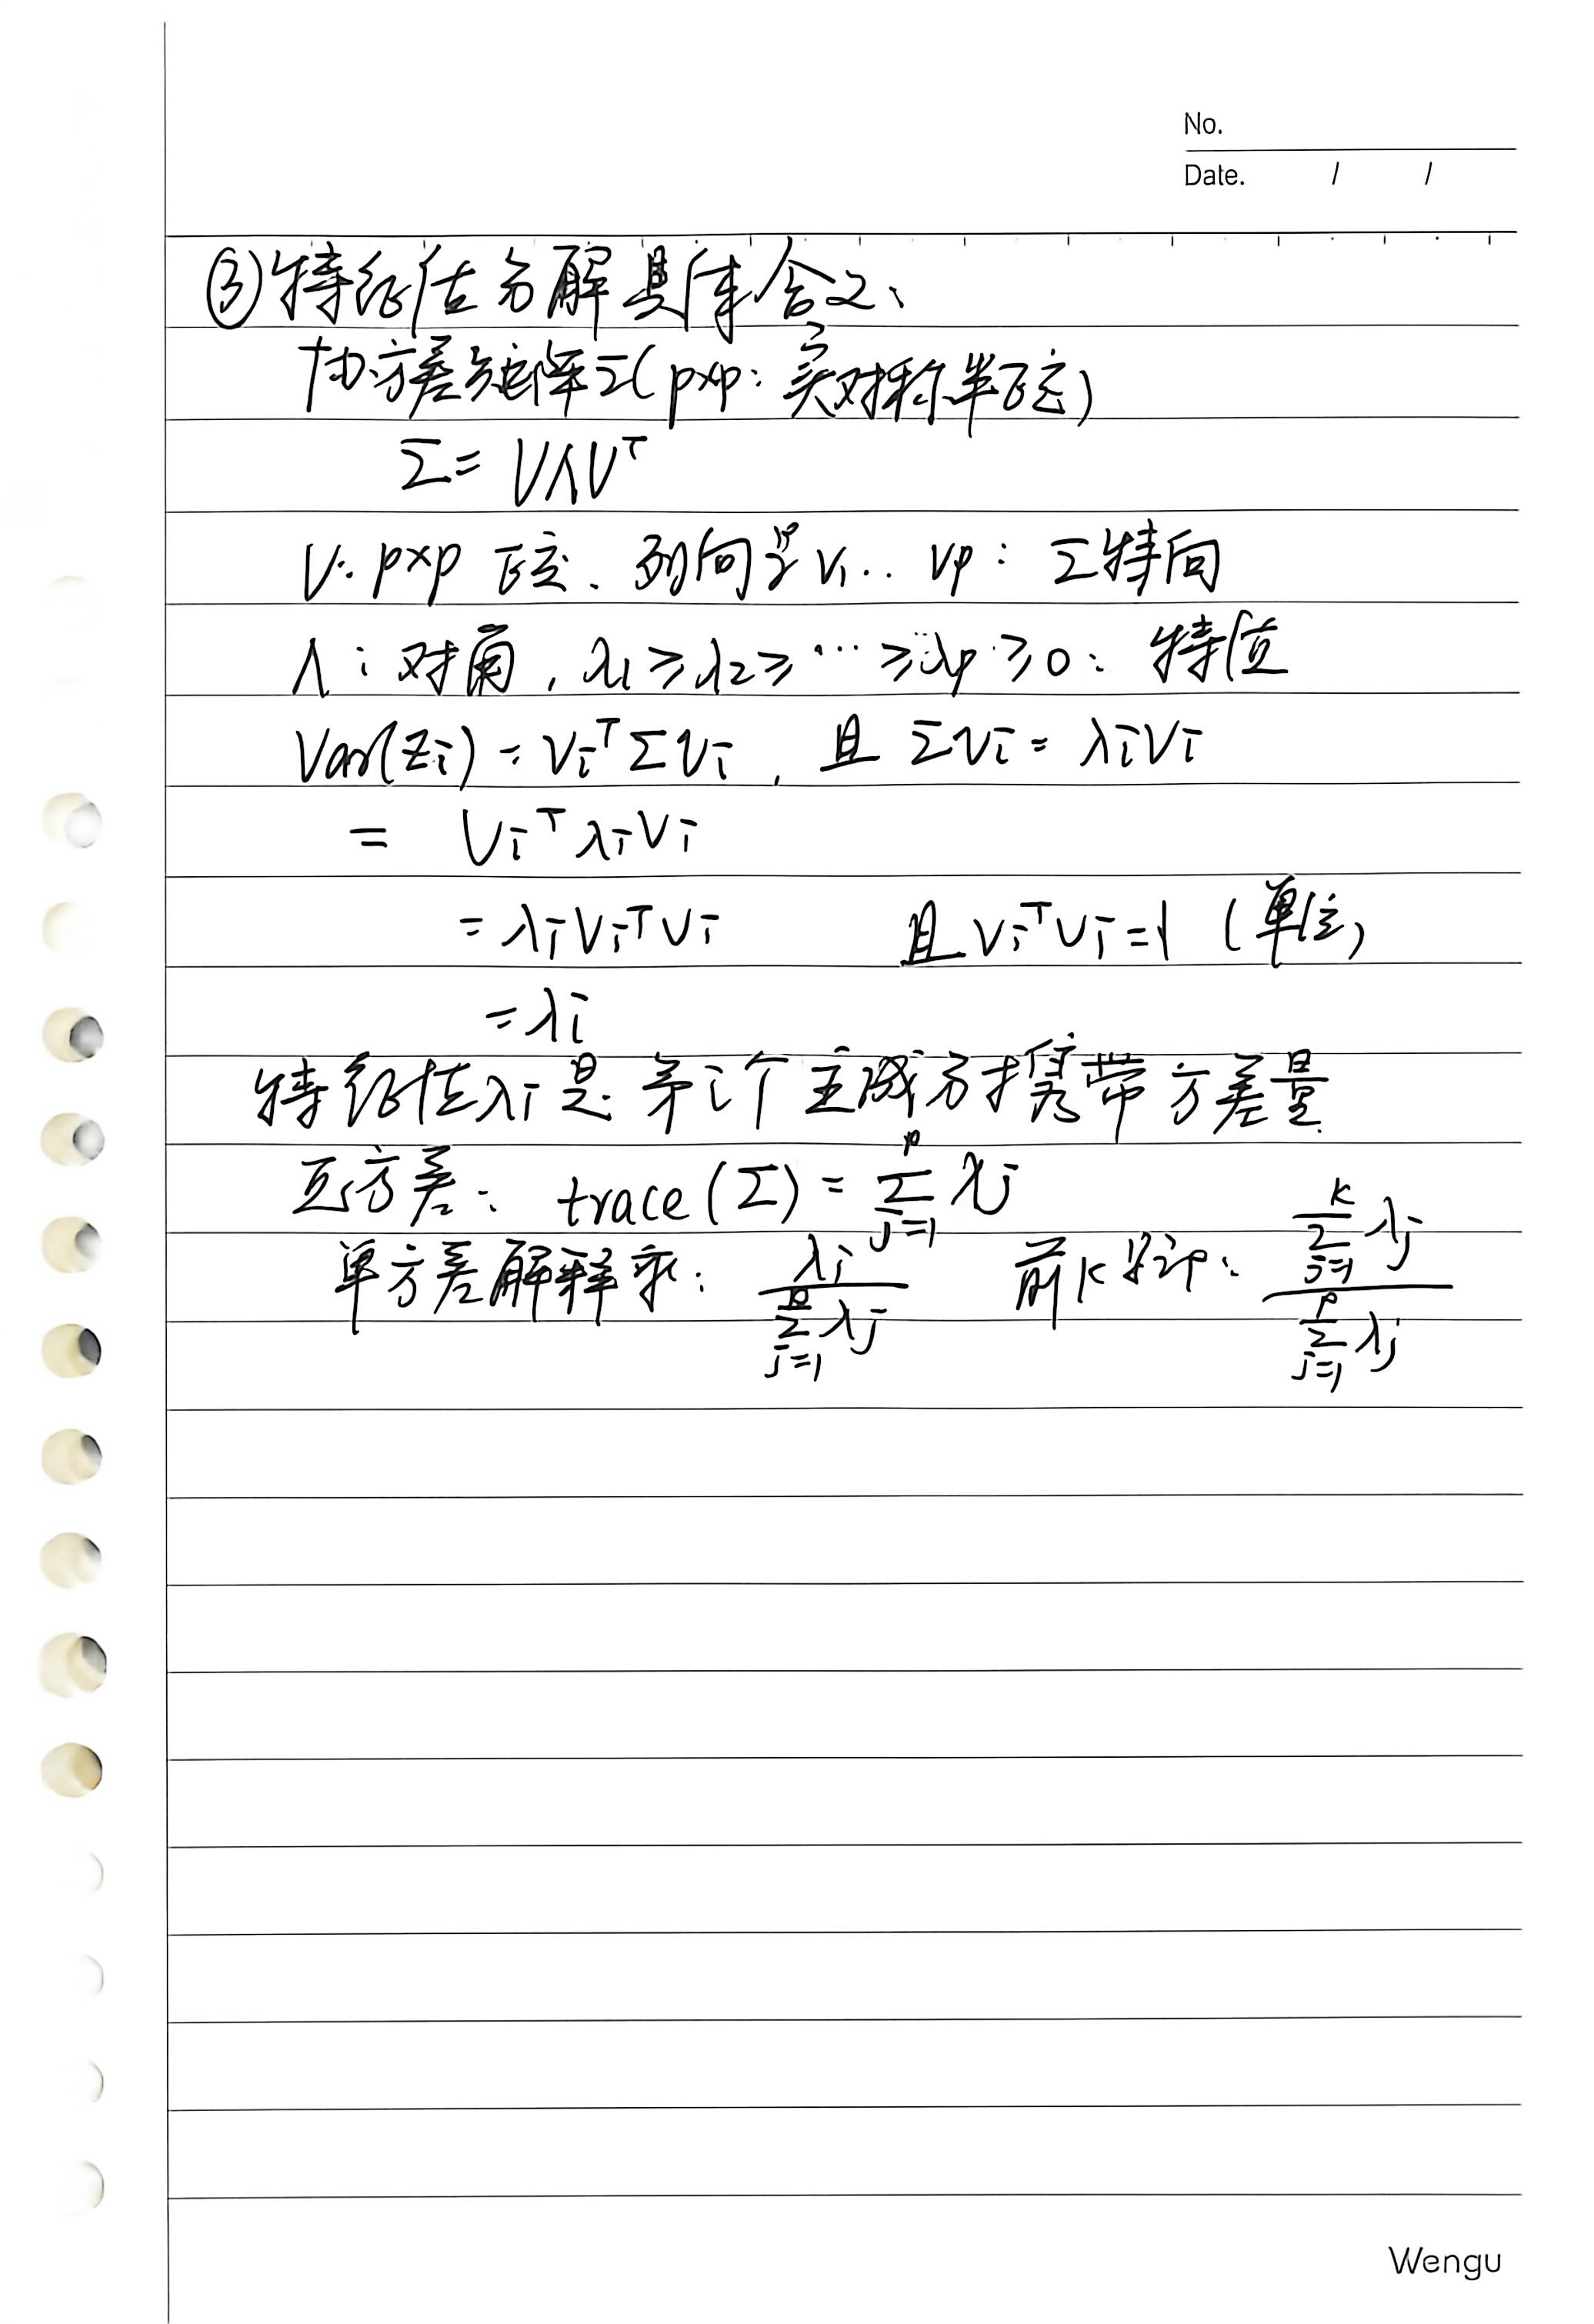 No.
Date. / /
③特征值分解具体含义、
协方差矩阵Σ(p×p: 实对称半正定)
Σ = VΛVᵀ
V: p×p 正交、列向量 v₁.. vp : Σ特向
Λ : 对角, λ₁ ≥ λ₂ ≥ ··· ≥ λp ≥ 0 : 特值
Var(zᵢ) = vᵢᵀ Σ vᵢ , 且 Σvᵢ = λᵢvᵢ
= vᵢᵀ λᵢ vᵢ
= λᵢ vᵢᵀ vᵢ 且 vᵢᵀ vᵢ = 1 (单位)
= λᵢ
特征值λᵢ是第i个主成分携带方差量.
总方差: trace(Σ) = Σⱼ₌₁ᵖ λⱼ
单方差解释率: λᵢ / Σⱼ₌₁ᵖ λⱼ 前K累计: Σⱼ₌₁ᴷ λⱼ / Σⱼ₌₁ᵖ λⱼ
Wengu